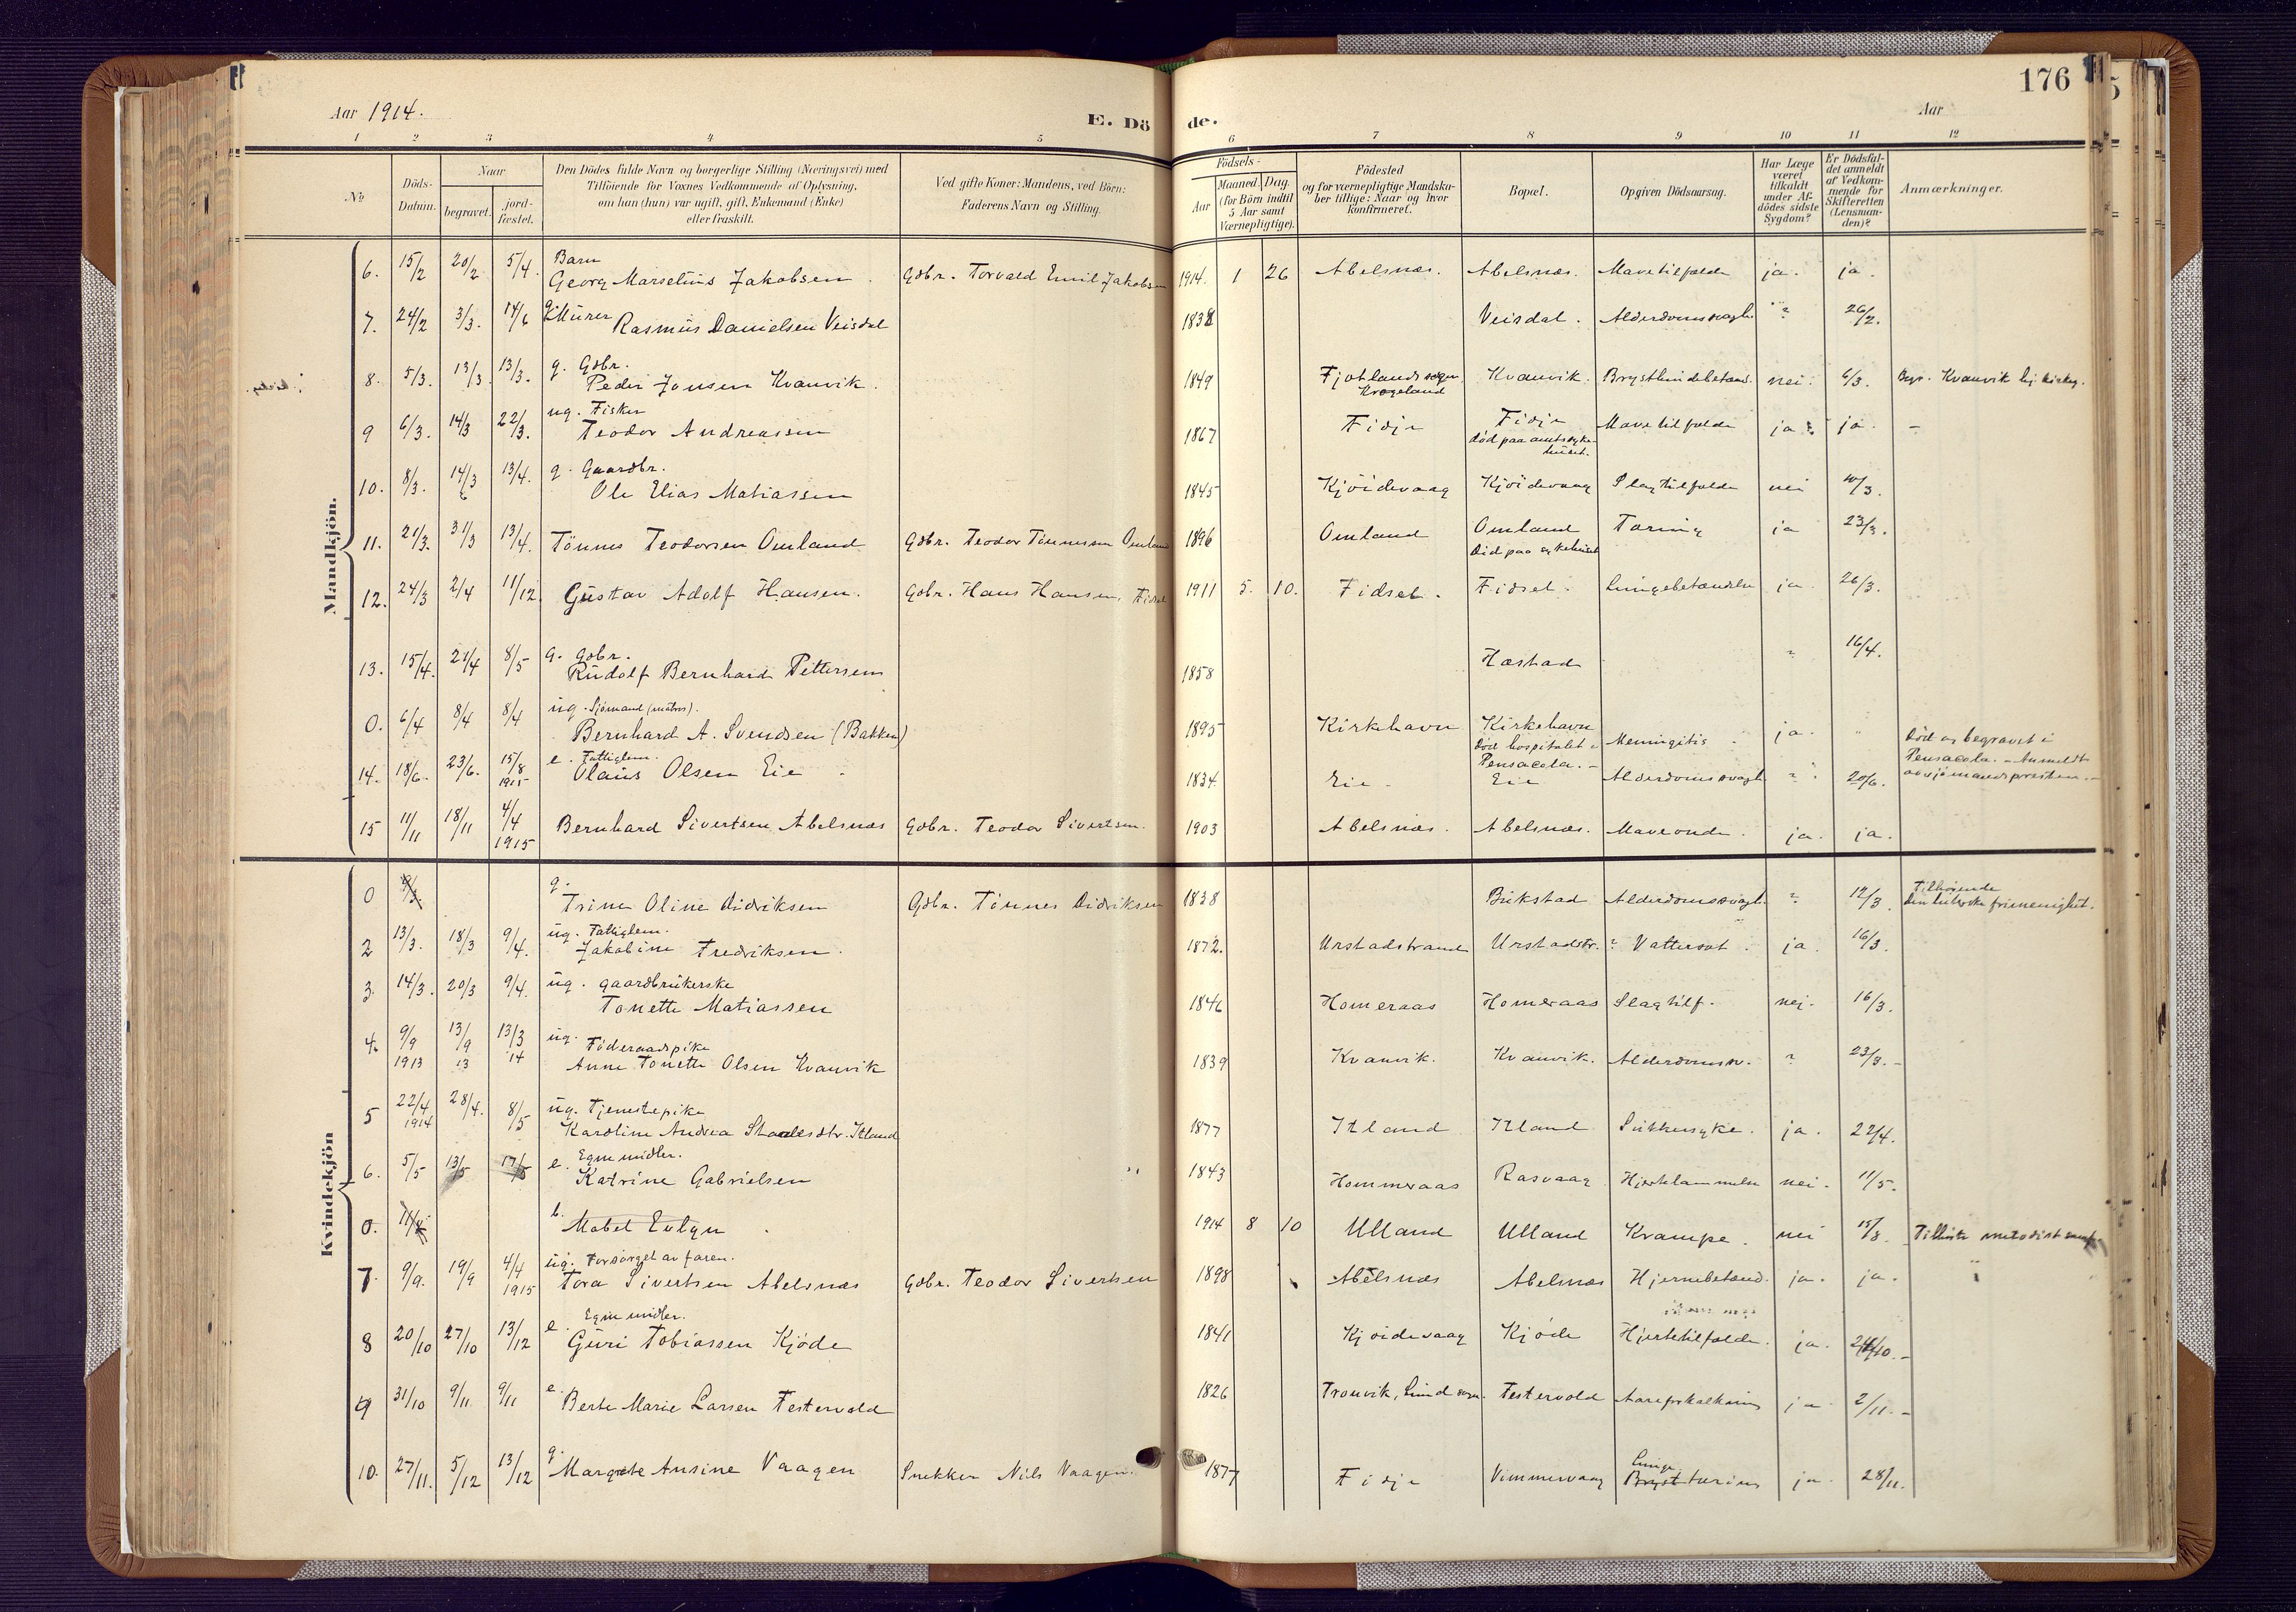 176
Aar 1914.
E. Dö de.
Aar
1 2 3 4 5 6 7 8 9 10 11 12
No
Döds-Datum.
Naar
begravet.
jord-fæstet.
Den Dödes fulde Navn og borgerlige Stilling (Næringsvei) med
Tilföiende for Voxnes Vedkommende af Oplysning,
om han (hun) var ugift, gift, Enkemand (Enke)
eller fraskilt.
Ved gifte Koner: Mandens, ved Börn:
Faderens Navn og Stilling.
Födsels-
Aar
Maaned. Dag.
(for Börn indtil
5 Aar samt
Værnepligtige).
Födested
og for værnepligtige Mandska-
ber tillige: Naar og hvor
konfirmeret.
Bopæl.
Opgiven Dödsaarsag.
Har Læge
været
tilkaldt
under Af-
dödes sidste
Sygdom?
Er Dödsfal-
det anmeldt
af Vedkom-
mende for
Skifteretten
(Lensman-
den)?
Anmærkninger.
Mandkjön.
6. 15/2 20/2 5/4. Barn
Georg Marselius Jakobsen Gdbr. Torvald Emil Jakobsen 1914. 1 26 Abelsnæs. Abelsnæs. Mavetilfælde ja. ja.
7. 24/2 3/3. 14/6 g. Murer
Rasmus Danielsen Veisdal 1838 Veisdal. Alderdomssvagh. ? 26/2.
8. 5/3. 13/3. 13/3. g. Gdbr.
Peder Jonsen Kvanvik. 1849 Fjotlands sogn, Kvanvik. Brysthindebetænd. nei. 6/3. Kvanvik
Krogeland
9 6/3. 14/3 22/3. ug. Fisker
Teodor Andreassen 1867 Fidje Fidje Mavetilfælde ja ja. -
död paa amtssyke-
huset.
10. 8/3. 14/3 13/4. g. Gaardbr.
Ole Elias Matiassen 1845 Kjöidevaag Kjöidevaag Slagtilfælde nei 10/3.
11. 21/3. 31/3 13/4. Tönnes Teodorsen Omland Gdbr. Teodor Tönnessen Omland 1896 Omland Omland Tæring ja 23/3.
död paa sykehuset
12. 24/3 2/4 11/12. Gustav Adolf Hansen. Gdbr. Hans Hansen, Fidsel 1911 5. 10. Fidsel. Fidsel. Lungebetændelse ja. 26/3.
13. 15/4. 21/4 8/5 g. gdbr.
Rudolf Bernhard Pettersen 1858 Hæstad ? 16/4.
0. 6/4 8/4 8/4 ug. Sjömand (matros).
Bernhard A. Svendsen (Bakken) 1895 Kirkehavn Kirkehavn Meningitis ja. " Död og begravet i
Död hospitalet i
Pensacola. - Pensacola. - Anmeldt
av sjömandspresten. -
14. 18/6. 23/6. 15/8 1915 e. Fattiglem.
Olaus Olsen Eie 1834. Eie. Eie Alderdomssvagh. ? 20/6.
15 11/11 18/11 4/4 1915 Bernhard Sivertsen Abelsnæs Gdbr. Teodor Sivertsen. 1903 Abelsnæs. Abelsnæs. Maveonde. ja. ja.
Kvindekjön
0 9/3. g.
Trine Oline Didriksen Gdbr. Tönnes Didriksen 1838 Bukstad Alderdomssvagh. ? 12/3. Tilhörende
Den lutherske frimenighet.
2 13/3. 18/3 9/4. ug. Fattiglem.
Jakobine Fredriksen. 1872. Urstadstrand Urstadstr. ? Vattersot. ja. 16/3.
3. 14/3. 20/3 9/4. ug. gaardbrukerske
Tonette Matiassen 1846 Homeraas Homeraas Slagtilf. nei. 16/3.
4. 9/9 1913 13/9 13 13/3 '14 ug. Föderaadspike
Anne Tonette Olsen Kvanvik 1839 Kvanvik. Kvanvik. Alderdomssv. ? 23/3. -
5 22/4 1914 28/4. 8/5 ug. Tjenestepike
Karoline Andrea Itland 1877 Itland Itland Sukkersyke. ja. 22/4.
6. 5/5 13/5 17/5 e. Egne midler.
Katrine Gabrielsen " 1843 Hommeraas Rasvaag Hjertelammelse nei. 11/5.
0. 11/8 b. Mabel Evlyn 1914 8 10 Ulland Ulland Krampe. nei 15/8. Tilhörte metodist
7. 9/9. 19/9 4/4 1915 ug. Forsörget av faren.
Tora Sivertsen Abelsnæs Gdbr. Teodor Sivertsen 1898 Abelsnæs Abelsnæs Hjernebetænd. ja. ja. "
8 20/10 27/10 13/12 e. Egne midler.
Guri Tobiassen Kjöde 1841 Kjöidevaag Kjöde Hjertetilfælde. ja. /10. -
9 31/10 9/11 9/11 e.
Berte Marie Larsen Festervold 1826 Tronvik, Lund sogn. Festervold Aareforkalkning ja 2/11. -
10. 27/11. 5/12 13/12 g.
Margrete Ansine Vaagen Snekker Nils Vaagen. 1877 Fidje Vimmervaag Lunge
Bryst tæring ja. 28/11.